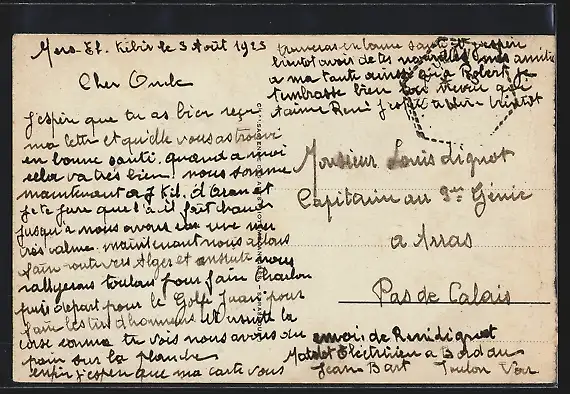 Mers-El-Kébir le 3 Août 1925
Cher Oncle
j'espère que tu as bien reçu
ma lettre et qu'elle vous a trouvé
en bonne santé. quand a moi
cela va très bien. nous sommes
maintenant a 7 Kil. d'Oran et
je te jure que là il fait chaud
jusqu'a nous avons eu une mer
très calme. maintenant nous allons
faire route vers Alger et ensuite nous
rallyerons toulon pour faire charbon
puis départ pour le Golfe Juan pour
faire les tirs d'honneurs et ensuite la
corse comme tu vois nous avons du
pain sur la planche
enfin j'espère que ma carte vous
trouvera en bonne santé et j'espère
bientot avoir de tes nouvelles mes amitiés
a ma tante ainsi qu'a Robert je
t'embrasse bien ton neveu qui
t'aime René
Monsieur Louis diguet
Capitaine au 3me Génie
a Arras
Pas de Calais
envoi de René diguet
Matelot Electricien a Bord du
Jean Bart Toulon Var